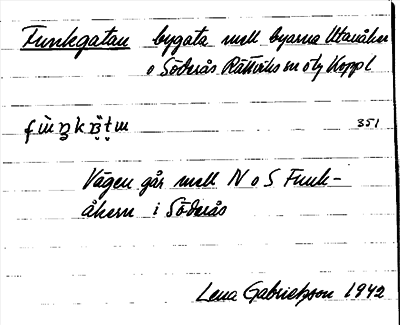 Funkgatan bygata mell byarna Utanåker
o Söderås Rättviks sn
351
Vägen går mell N o S Funk-
åkern i Söderås
Lena Gabrielsson 1942